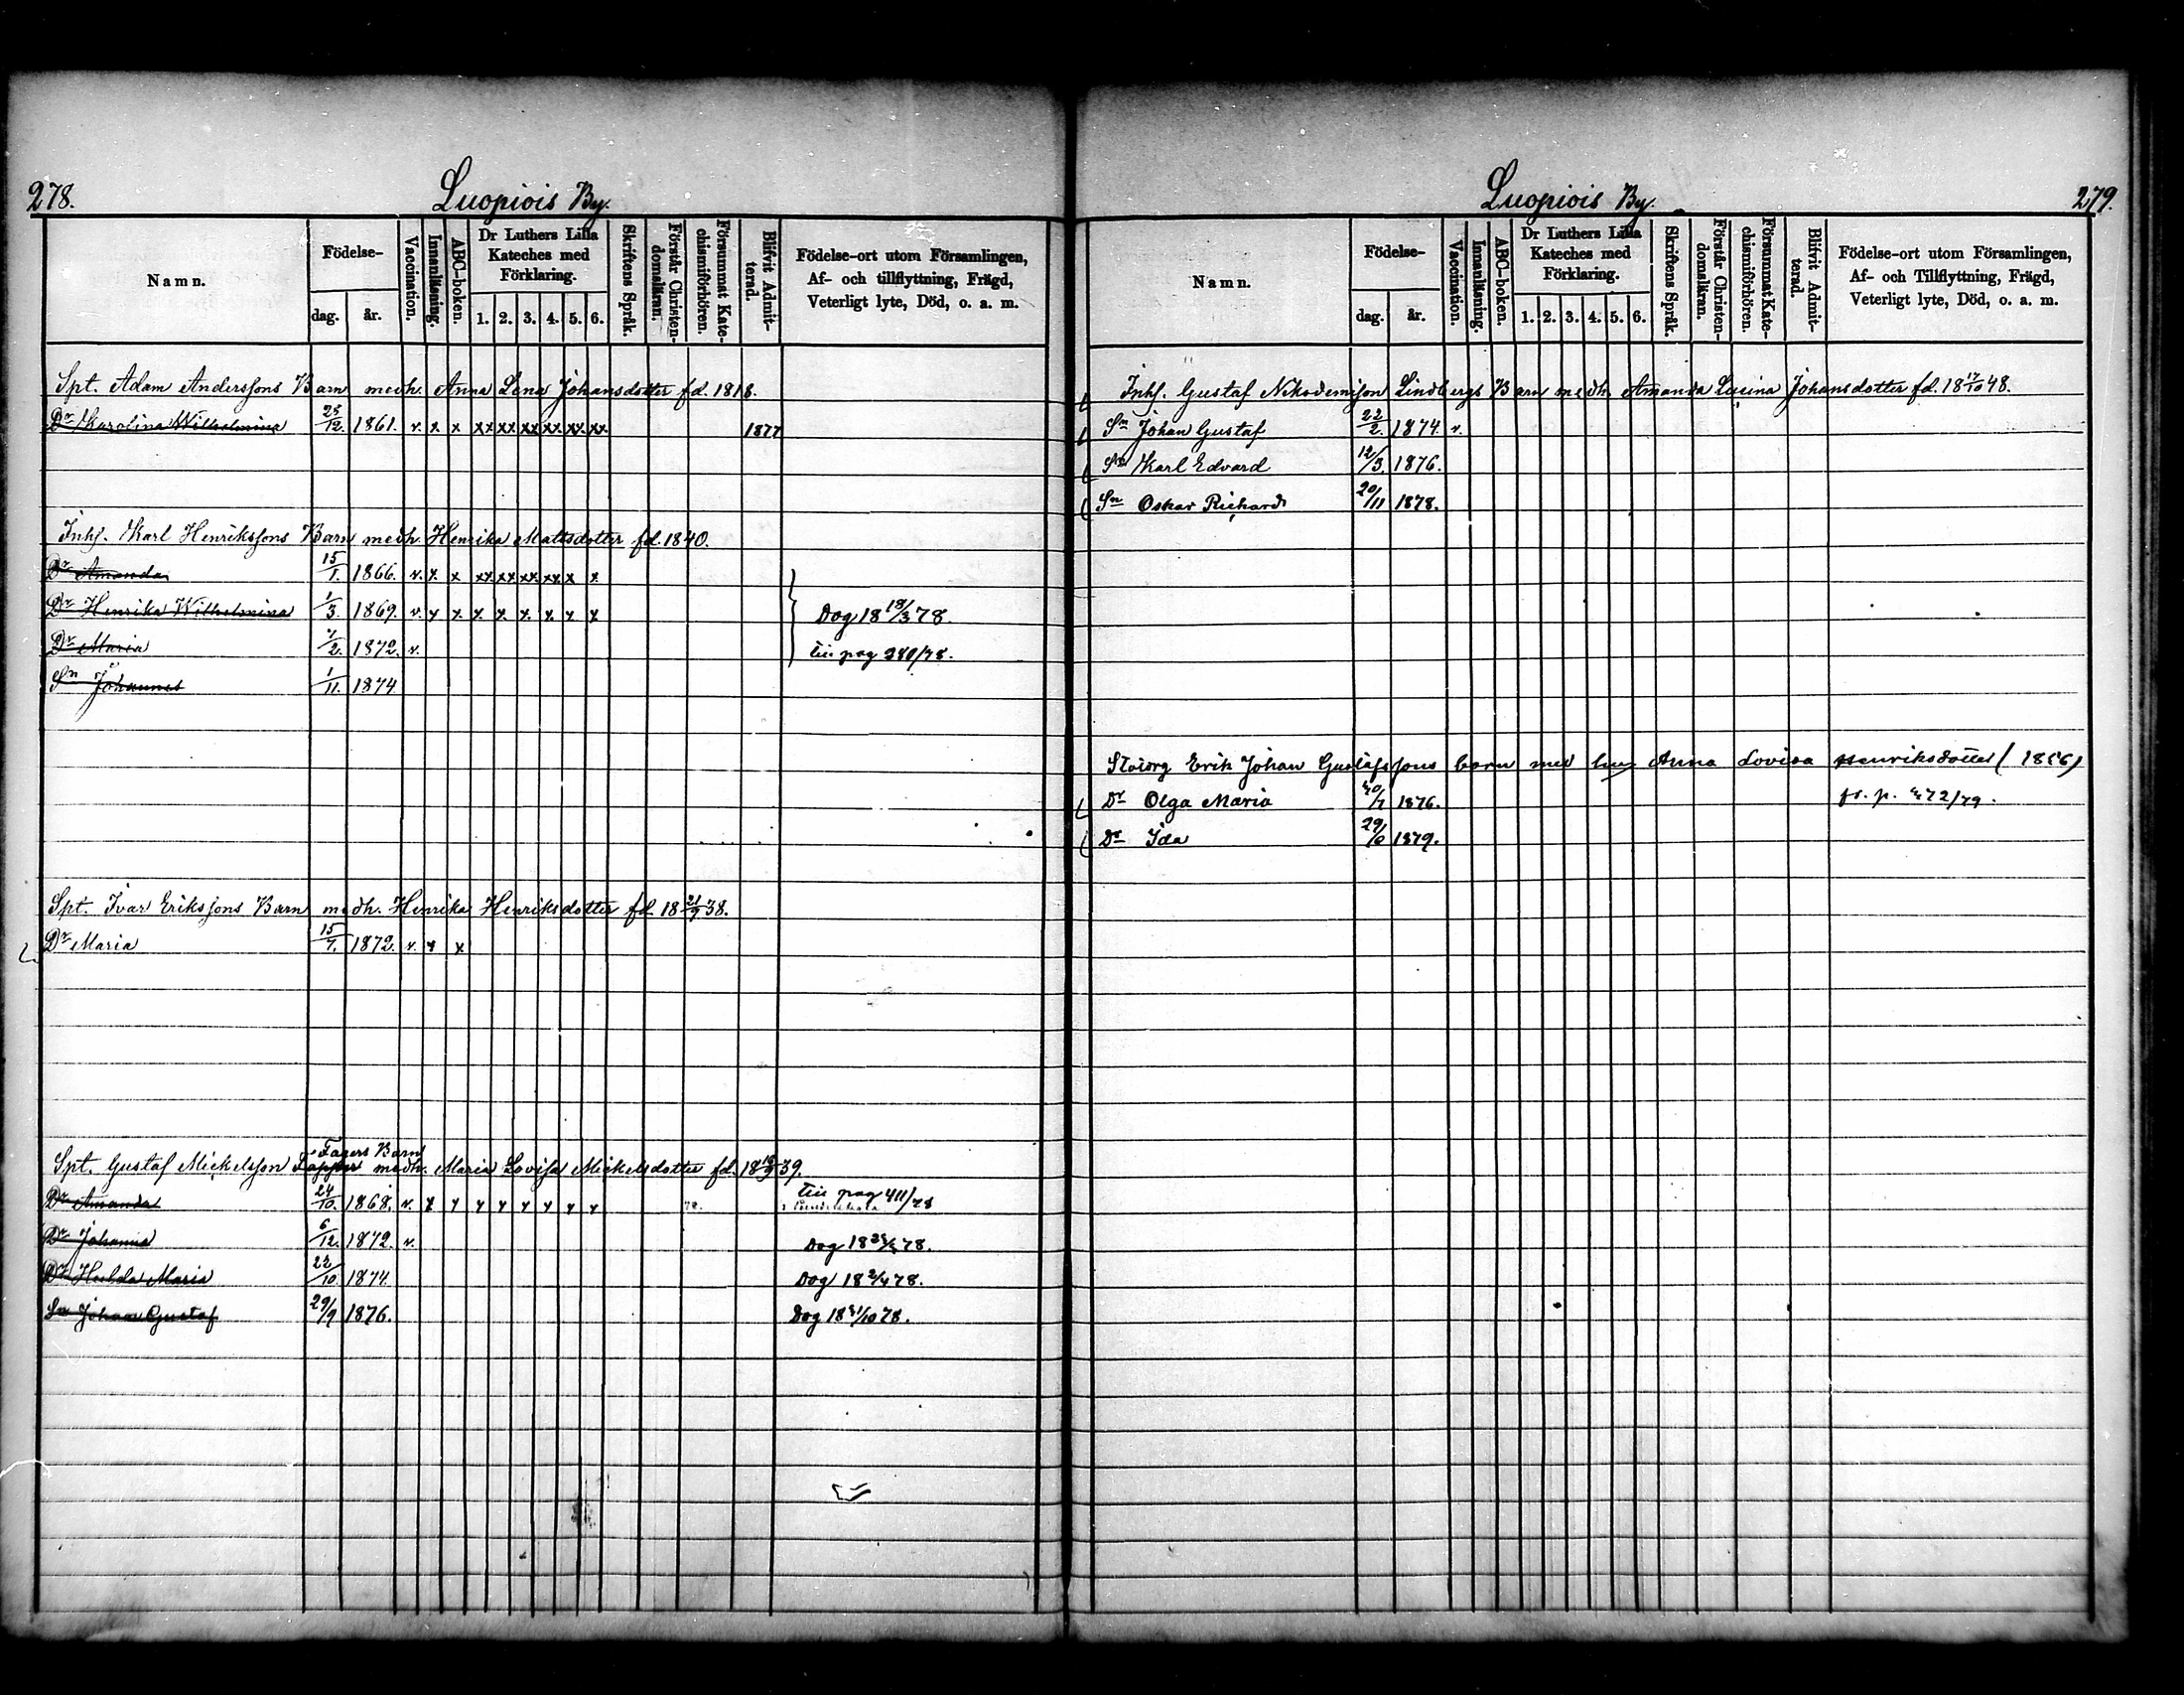 278.
Luopiois By.
Namn.
Födelse-
dag.
år.
Vaccination.
Innanläsning.
ABC-boken.
Dr Luthers Lilla Kateches med Förklaring.
1. 2. 3. 4. 5. 6.
Skriftens Språk.
Förstår Christen-domsläran.
Försummat Kate-chismiförhören.
Blifvit Admit-terad.
Födelse-ort utom Församlingen,
Af- och tillflyttning, Frägd,
Veterligt lyte, Död, o. a. m.
Spt. Adam Anderssons Barn medh. Anna Lena Johansdotter fd. 1818.
Dr Karolina Wilhelmina 25/12. 1861. v. x x xx xx xx xx xx xx 1877
Inhs. Karl Henrikssons Barn medh. Henrika Mattsdotter fd. 1840.
Dr Amanda 15/1. 1866. v. x x xx xx xx xx x x
Dr Henrika Wilhelmina 1/3. 1869. v. x x x x x x x x Dog 18 18/3 78.
Dr Maria /2. 1872. v. till pag
Sn Johannes 1/11. 1874
Spt. Ivar Erikssons Barn medh. Henrika Henriksdotter fd. 18 21/9 38.
Dr Maria 15/7. 1872. v. x x
Fagers Barn
Spt. Gustaf Mickelsson medh. Maria Lovisa Mickelsdotter fd. 18 39.
Dr Amanda 24/10. 1868. v. x x x x x x x x till pag 411/78
Dr Johanna 6/12. 1872. v. Dog 18 78.
Dr Hulda Maria 22/10. 1874. Dog 18 2/4 78.
Sn Johan Gustaf 29/9 1876. Dog 18 31/10 78.
279.
Luopiois By.
Namn.
Födelse-
dag.
år.
Vaccination.
Innanläsning.
ABC-boken.
Dr Luthers Lilla Kateches med Förklaring.
1. 2. 3. 4. 5. 6.
Skriftens Språk.
Förstår Christen-domsläran.
Försummat Kate-chismiförhören.
Blifvit Admit-terad.
Födelse-ort utom Församlingen,
Af- och Tillflyttning, Frägd,
Veterligt lyte, Död, o. a. m.
Inhs. Gustaf Nikodemisson Lindbergs Barn medh. Amanda Johansdotter fd. 18 17/10 48.
Sn Johan Gustaf 22/2. 1874. v.
Sn Karl Edvard 12/3. 1876.
Sn Oskar Richard 20/11 1878.
Erik Johan Gustafssons barn med hu Anna Lovisa Henriksdotter (1856)
Dr Olga Maria 1876. fr. p.
Dr Ida 29/6 1879.